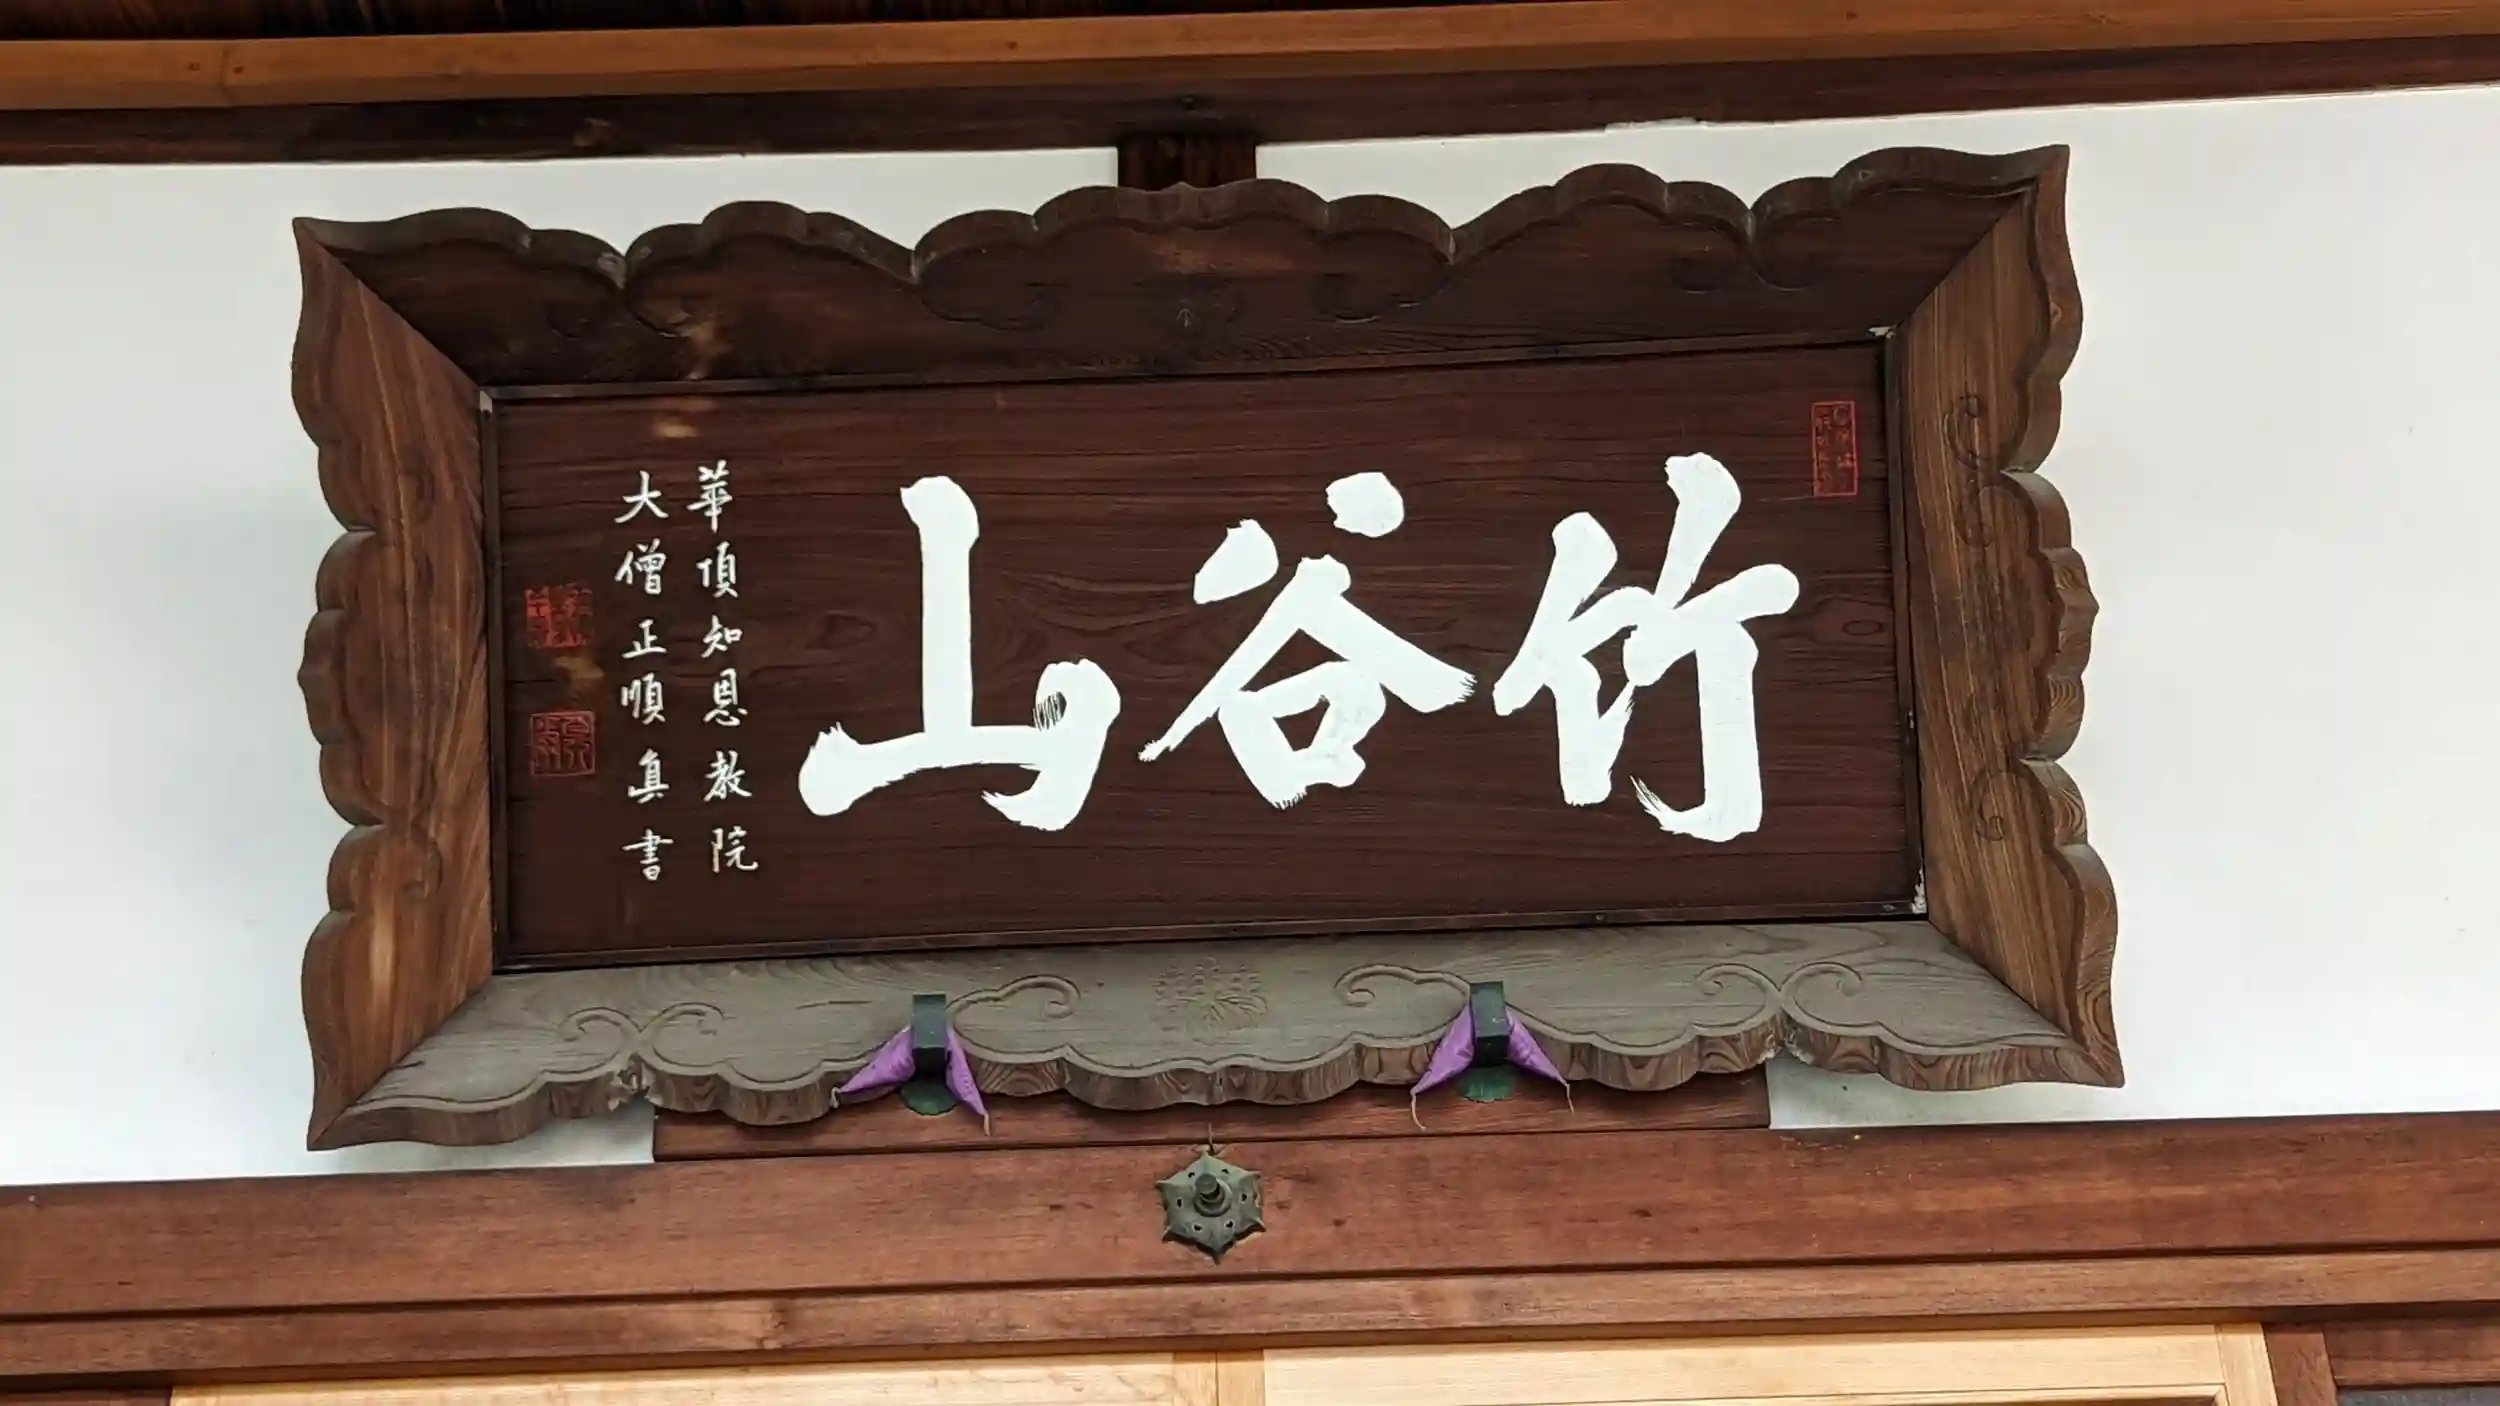 竹谷山
華頂知恩教院
大僧正順真書